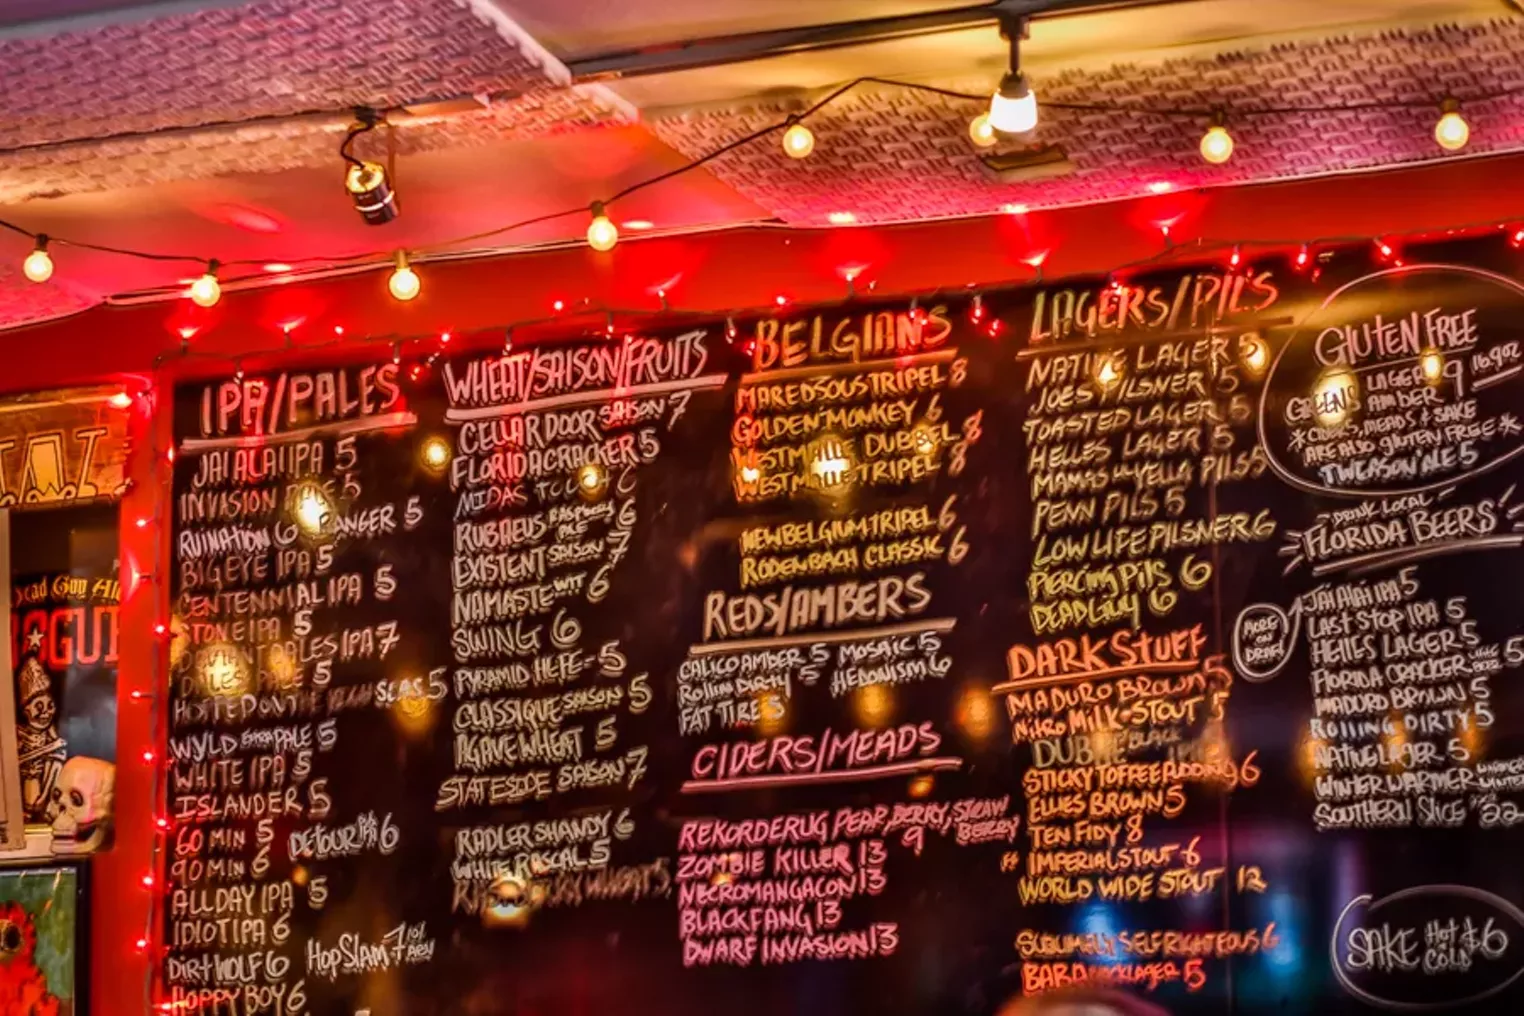 IPA/PALES
JAI ALAI IPA 5
INVASION 5
RUINATION 6 RANGER 5
BIG EYE IPA 5
CENTENNIAL IPA 5
STONE IPA 5
DEVIANT DALES IPA 7
DALES PALE 5
HOPPED ON THE HIGH SEAS 5
WYLD EXTRA PALE 5
WHITE IPA 5
ISLANDER 5
60 MIN 5
DETOUR 6
90 MIN 6
ALL DAY IPA 5
IDIOT IPA 6
HOPSLAM 7 10% ABV
DIRTWOLF 6
HOPPY BOY 6
WHEAT/SAISON/FRUITS
CELLAR DOOR SAISON 7
FLORIDA CRACKER 5
MIDAS
RUBAEUS RASPBERRY ALE 6
EXISTENT SAISON 7
NAMASTE WIT 6
SWING 6
PYRAMID HEFE- 5
CLASSIQUE SAISON 5
AGAVE WHEAT 5
STATESIDE SAISON 7
RADLER SHANDY 6
WHITE RASCAL 5
WHEAT 5
BELGIANS
MAREDSOUS TRIPEL 8
GOLDEN MONKEY 6
WESTMALLE DUBBEL 8
WESTMALLE TRIPEL 8
NEW BELGIUM TRIPEL 6
RODENBACH CLASSIC 6
REDS/AMBERS
CALICO AMBER 5 MOSAIC 5
ROLLIN DIRTY 5 HEDONISM 6
FAT TIRE 5
CIDERS/MEADS
REKORDERLIG PEAR, BERRY, STRAWBERRY 9
ZOMBIE KILLER 13
NECROMANGACON 13
BLACK FANG 13
DWARF INVASION 13
LAGERS/PILS
NATIVE LAGER 5
JOES PILSNER 5
TOASTED LAGER 5
HELLES LAGER 5
MAMAS YELLA PILS 5
PENN PILS 5
LOW LIFE PILSNER 6
PIERCING PILS 6
DEAD GUY 6
DARK STUFF
MADURO BROWN 5
NITRO MILK STOUT 5
DUBHE BLACK IPA
STICKY TOFFEE PUDDING 6
ELLIES BROWN 5
TEN FIDY 8
IMPERIAL STOUT 6
WORLD WIDE STOUT 12
SUBLIMELY SELF RIGHTEOUS 6
LAGER 5
GLUTEN FREE
GREENS LAGER AMBER 9 16.9OZ
*CIDERS, MEADS & SAKE
ARE ALSO GLUTEN FREE*
TWEASON ALE 5
- DRINK LOCAL -
FLORIDA BEERS
MORE ON DRAFT
JAI ALAI IPA 5
LAST STOP IPA 5
HELLES LAGER 5
FLORIDA CRACKER 5
MADURO BROWN 5
ROLLING DIRTY 5
NATIVE LAGER 5
WINTER WARMER
SOUTHERN SLICE 22
SAKE HOT COLD $6
Dead Guy Ale
ROGUE